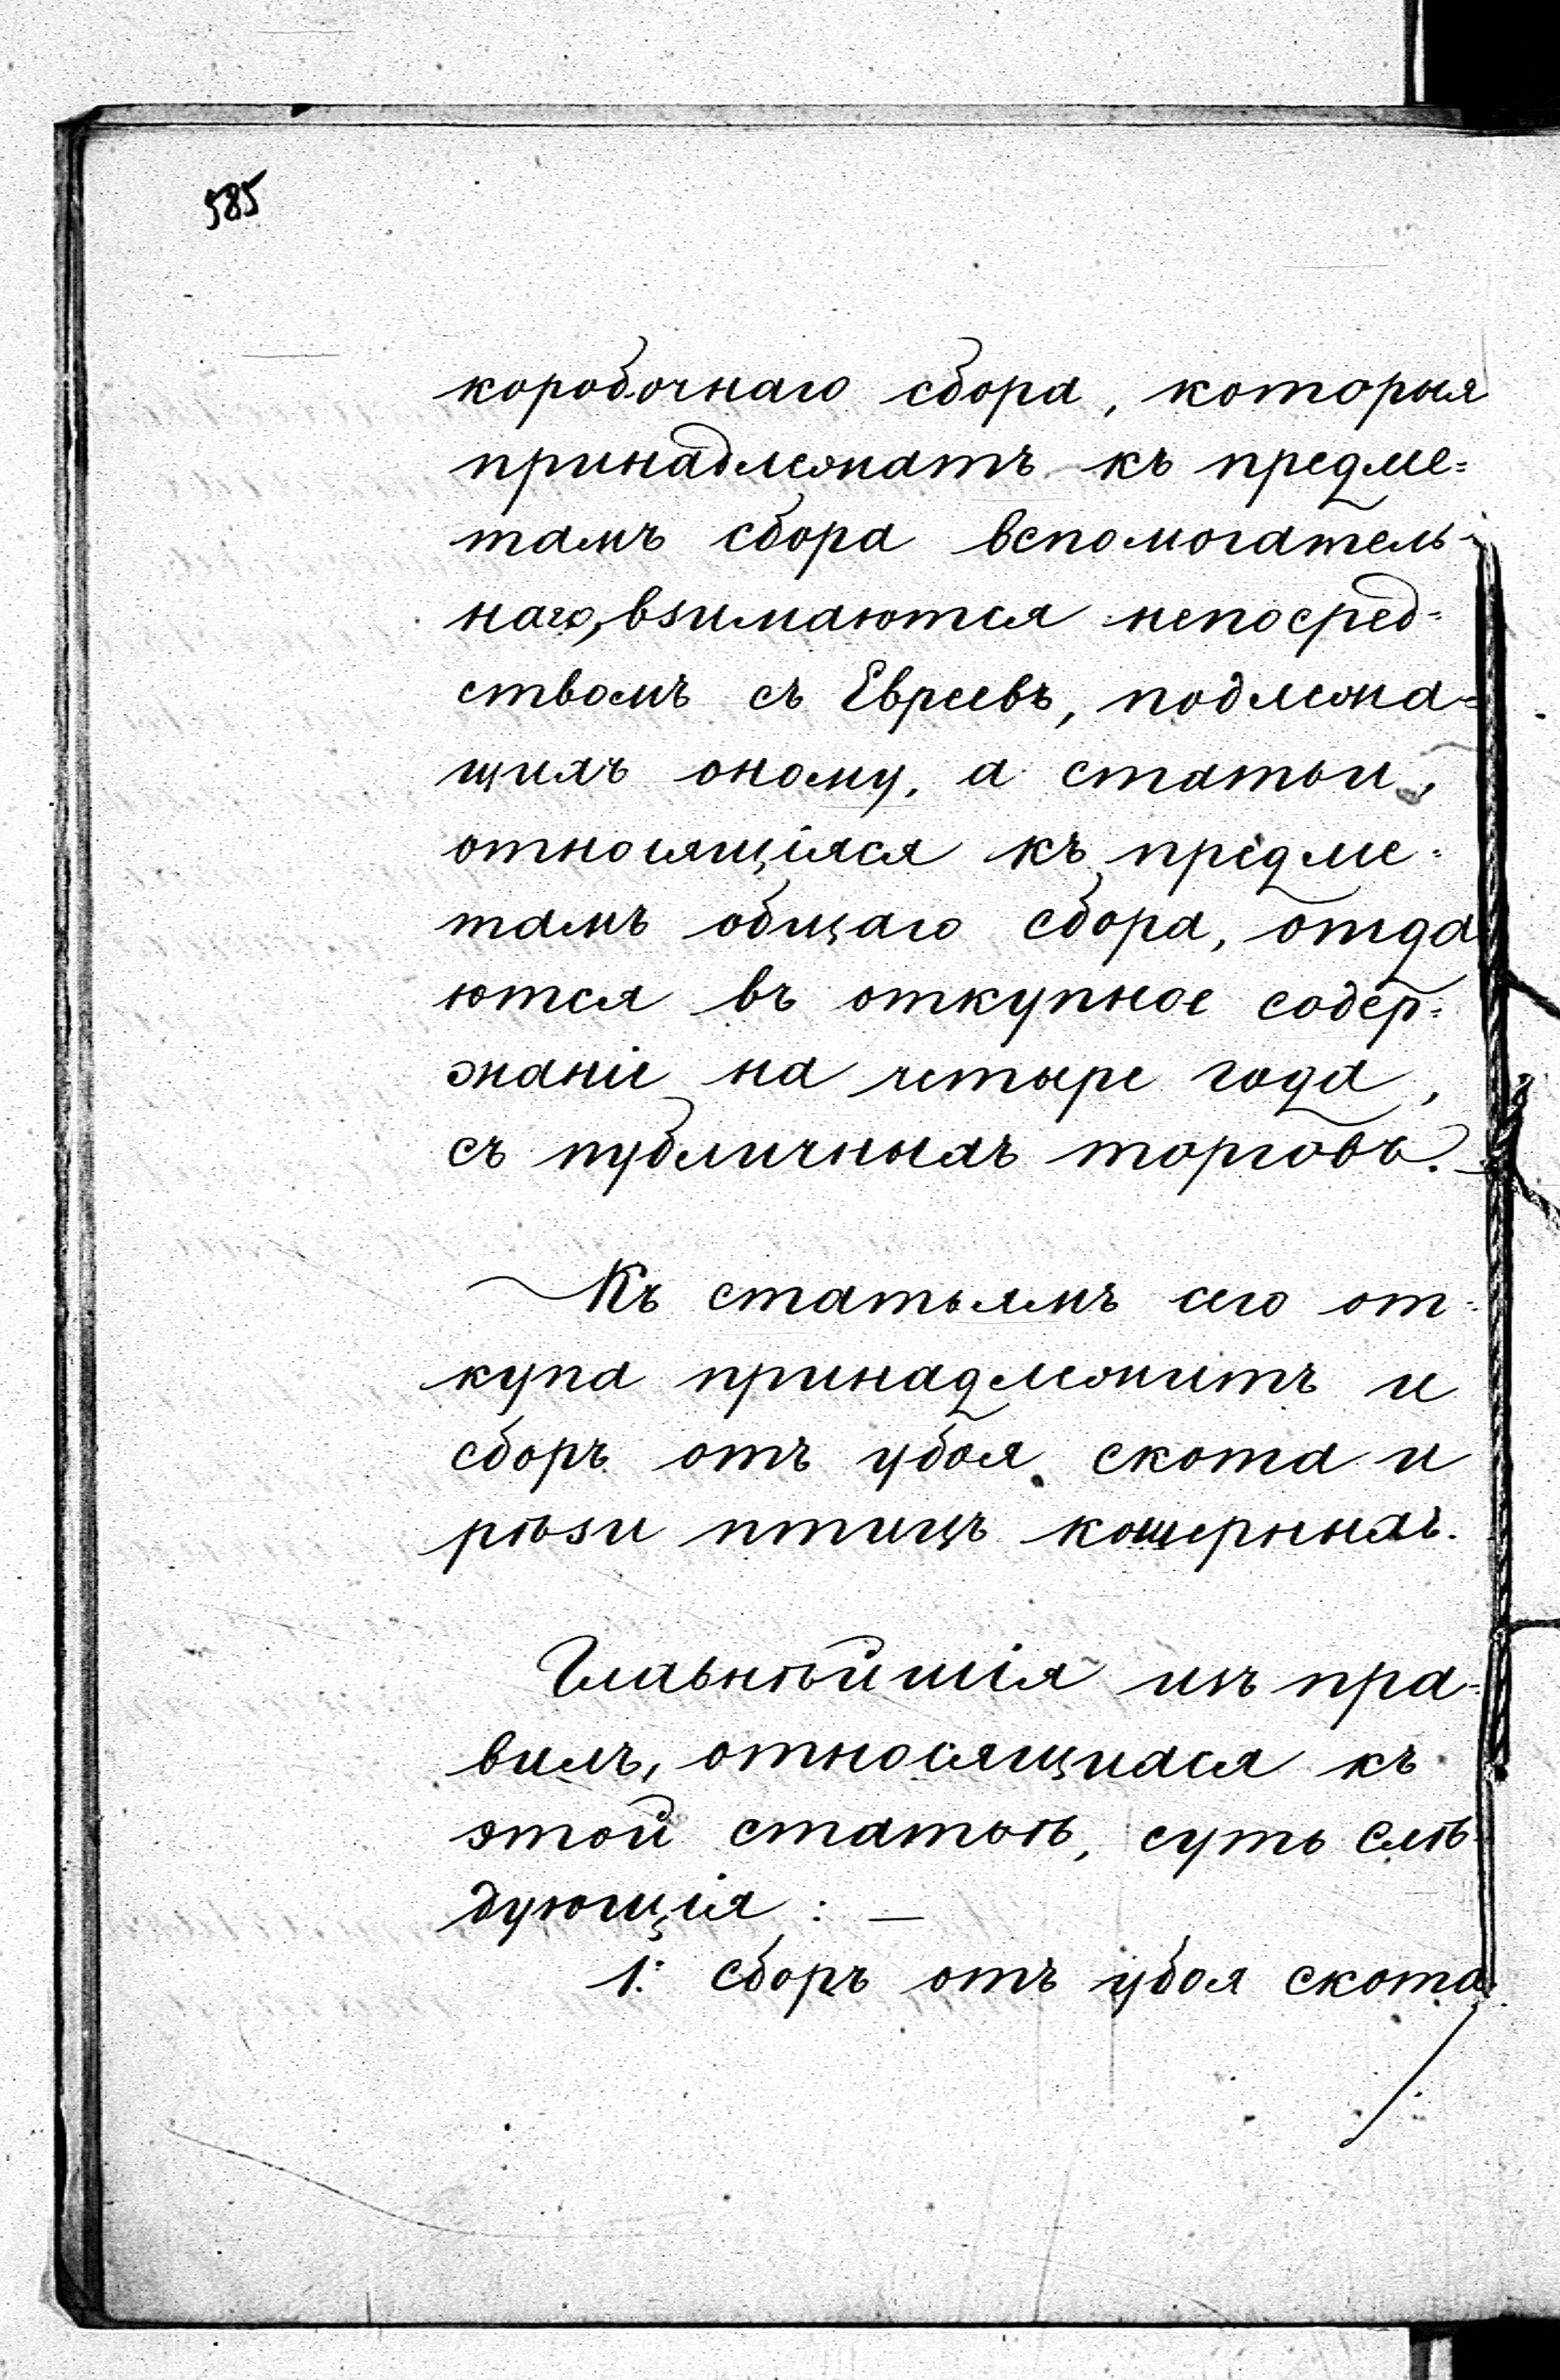 585
коробочнаго сбора, которыя
принадлежатъ къ предме=
тамъ сбора вспомогатель-
наго, взимаются непосред=
ствомъ съ Евреевъ, подлежа=
щихъ оному, а статьи,
относящіяся къ предме=
тамъ общаго сбора, отда
ются въ откупное содер=
жаніе на четыре года,
съ публичныхъ торговъ.
Къ статьямъ сего от=
купа принадлежитъ и
сборъ отъ убоя скота и
рѣзи птицъ кошерныхъ.
Главнѣйшія изъ пра=
вилъ, относящиася къ
этой статьѣ, суть слѣ-
дующія: —
1. сборъ отъ убоя скота